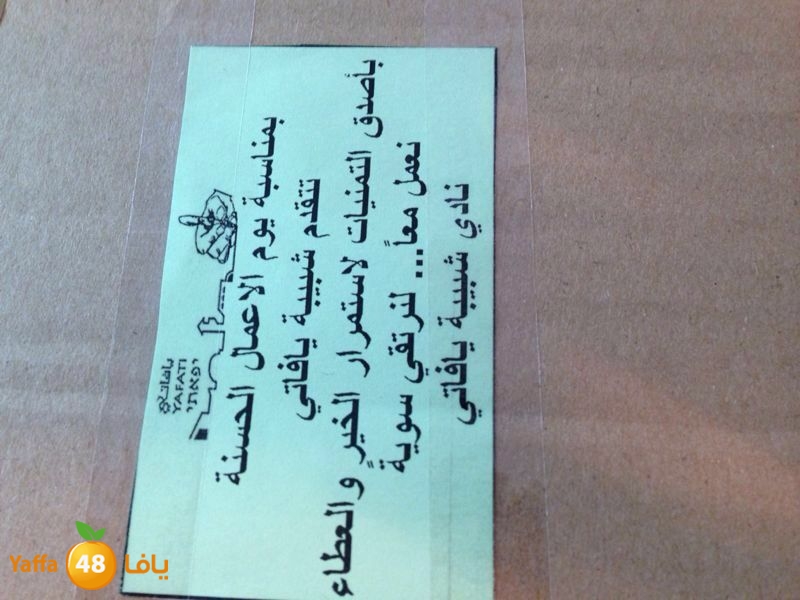 يافاتي
YAFATI
יפאתי
بمناسبة يوم الاعمال الحسنة
تتقدم شبيبة يافاتي
بأصدق التمنيات لاستمرار الخير والعطاء
نعمل معاً... لنرتقي سوية
نادي شبيبة يافاتي
Yaffa 48 يافا